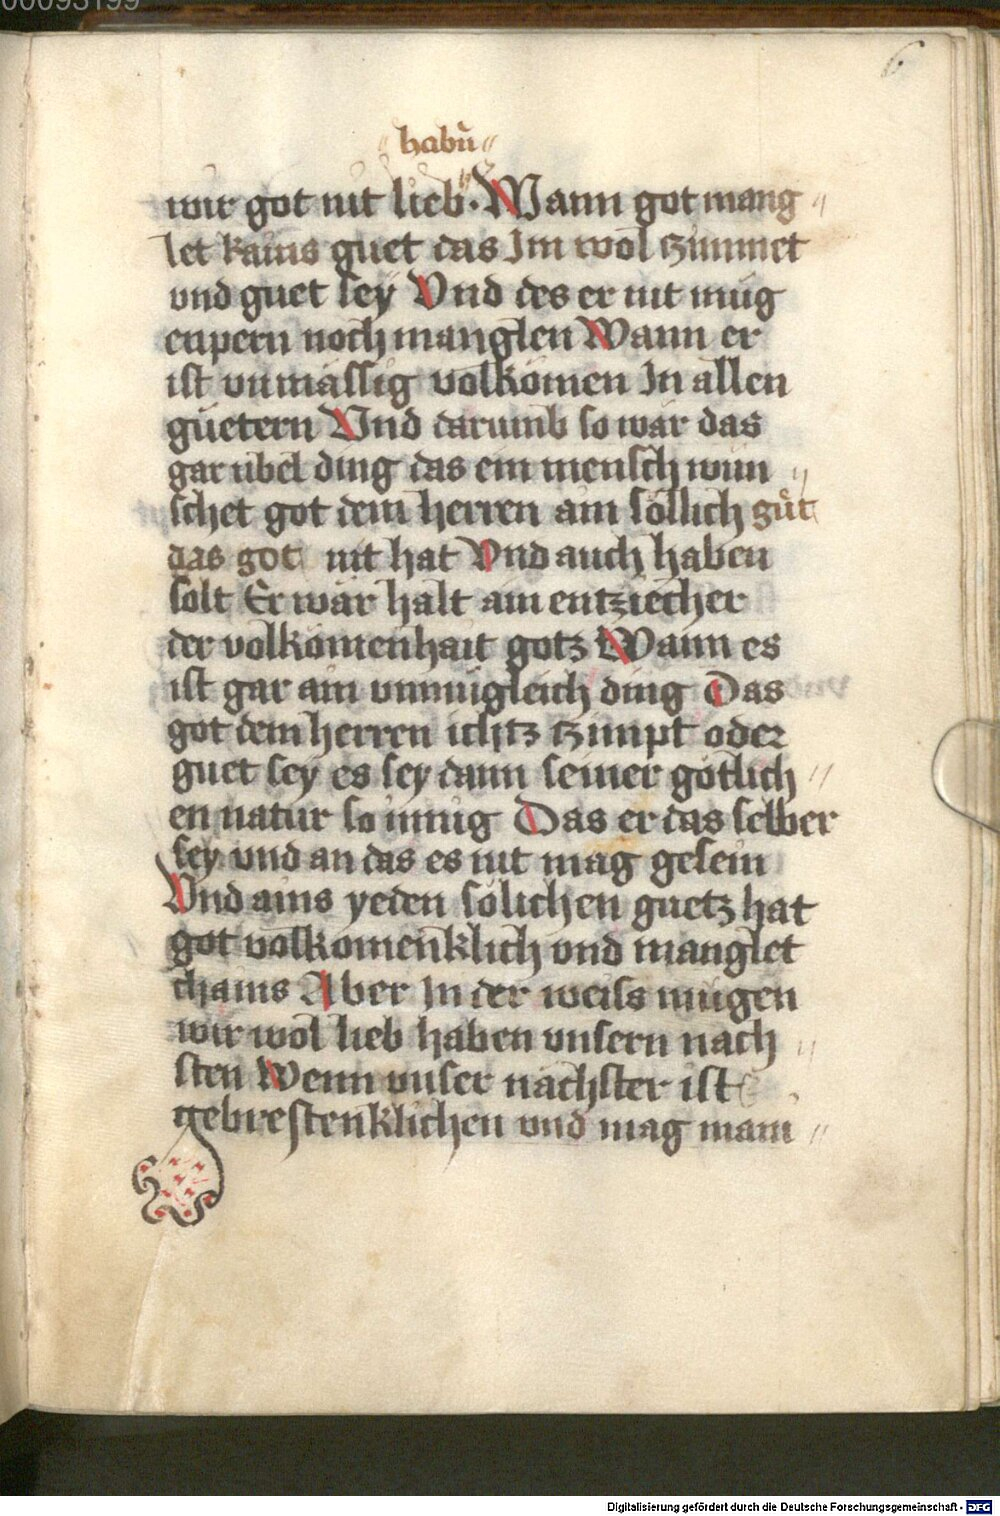 00093199
6
habñ
wir got nit lieb. Wann got mang
let kains guet das Im wol zimmet
vnd guet sey Vnd des er nit müg
enpern noch manglen Wann er
ist vnmässig volkömen In allen
güetern Vnd darumb so wär das
gar übel ding das ein mensch wün
schet got dem herren ain söllich güt
das got nit hat Vnd auch haben
solt Er wär halt ain entziecher
der volkömenhait gotz Wann es
ist gar ain vnmügleich ding Das
got dem herren ichtz zimpt oder
guet sey es sey dann seiner götlich
en natur so innig Das er das selber
sey vnd an das es nit mag gesein
Vnd ains yeden sölichen guetz hat
got volkomenklich vnd manglet
chains Aber In der weiss mügen
wir wol lieb haben vnsern nach
sten Wenn vnser nächster ist
gebrestenklichen vnd mag main
Digitalisierung gefördert durch die Deutsche Forschungsgemeinschaft - DFG